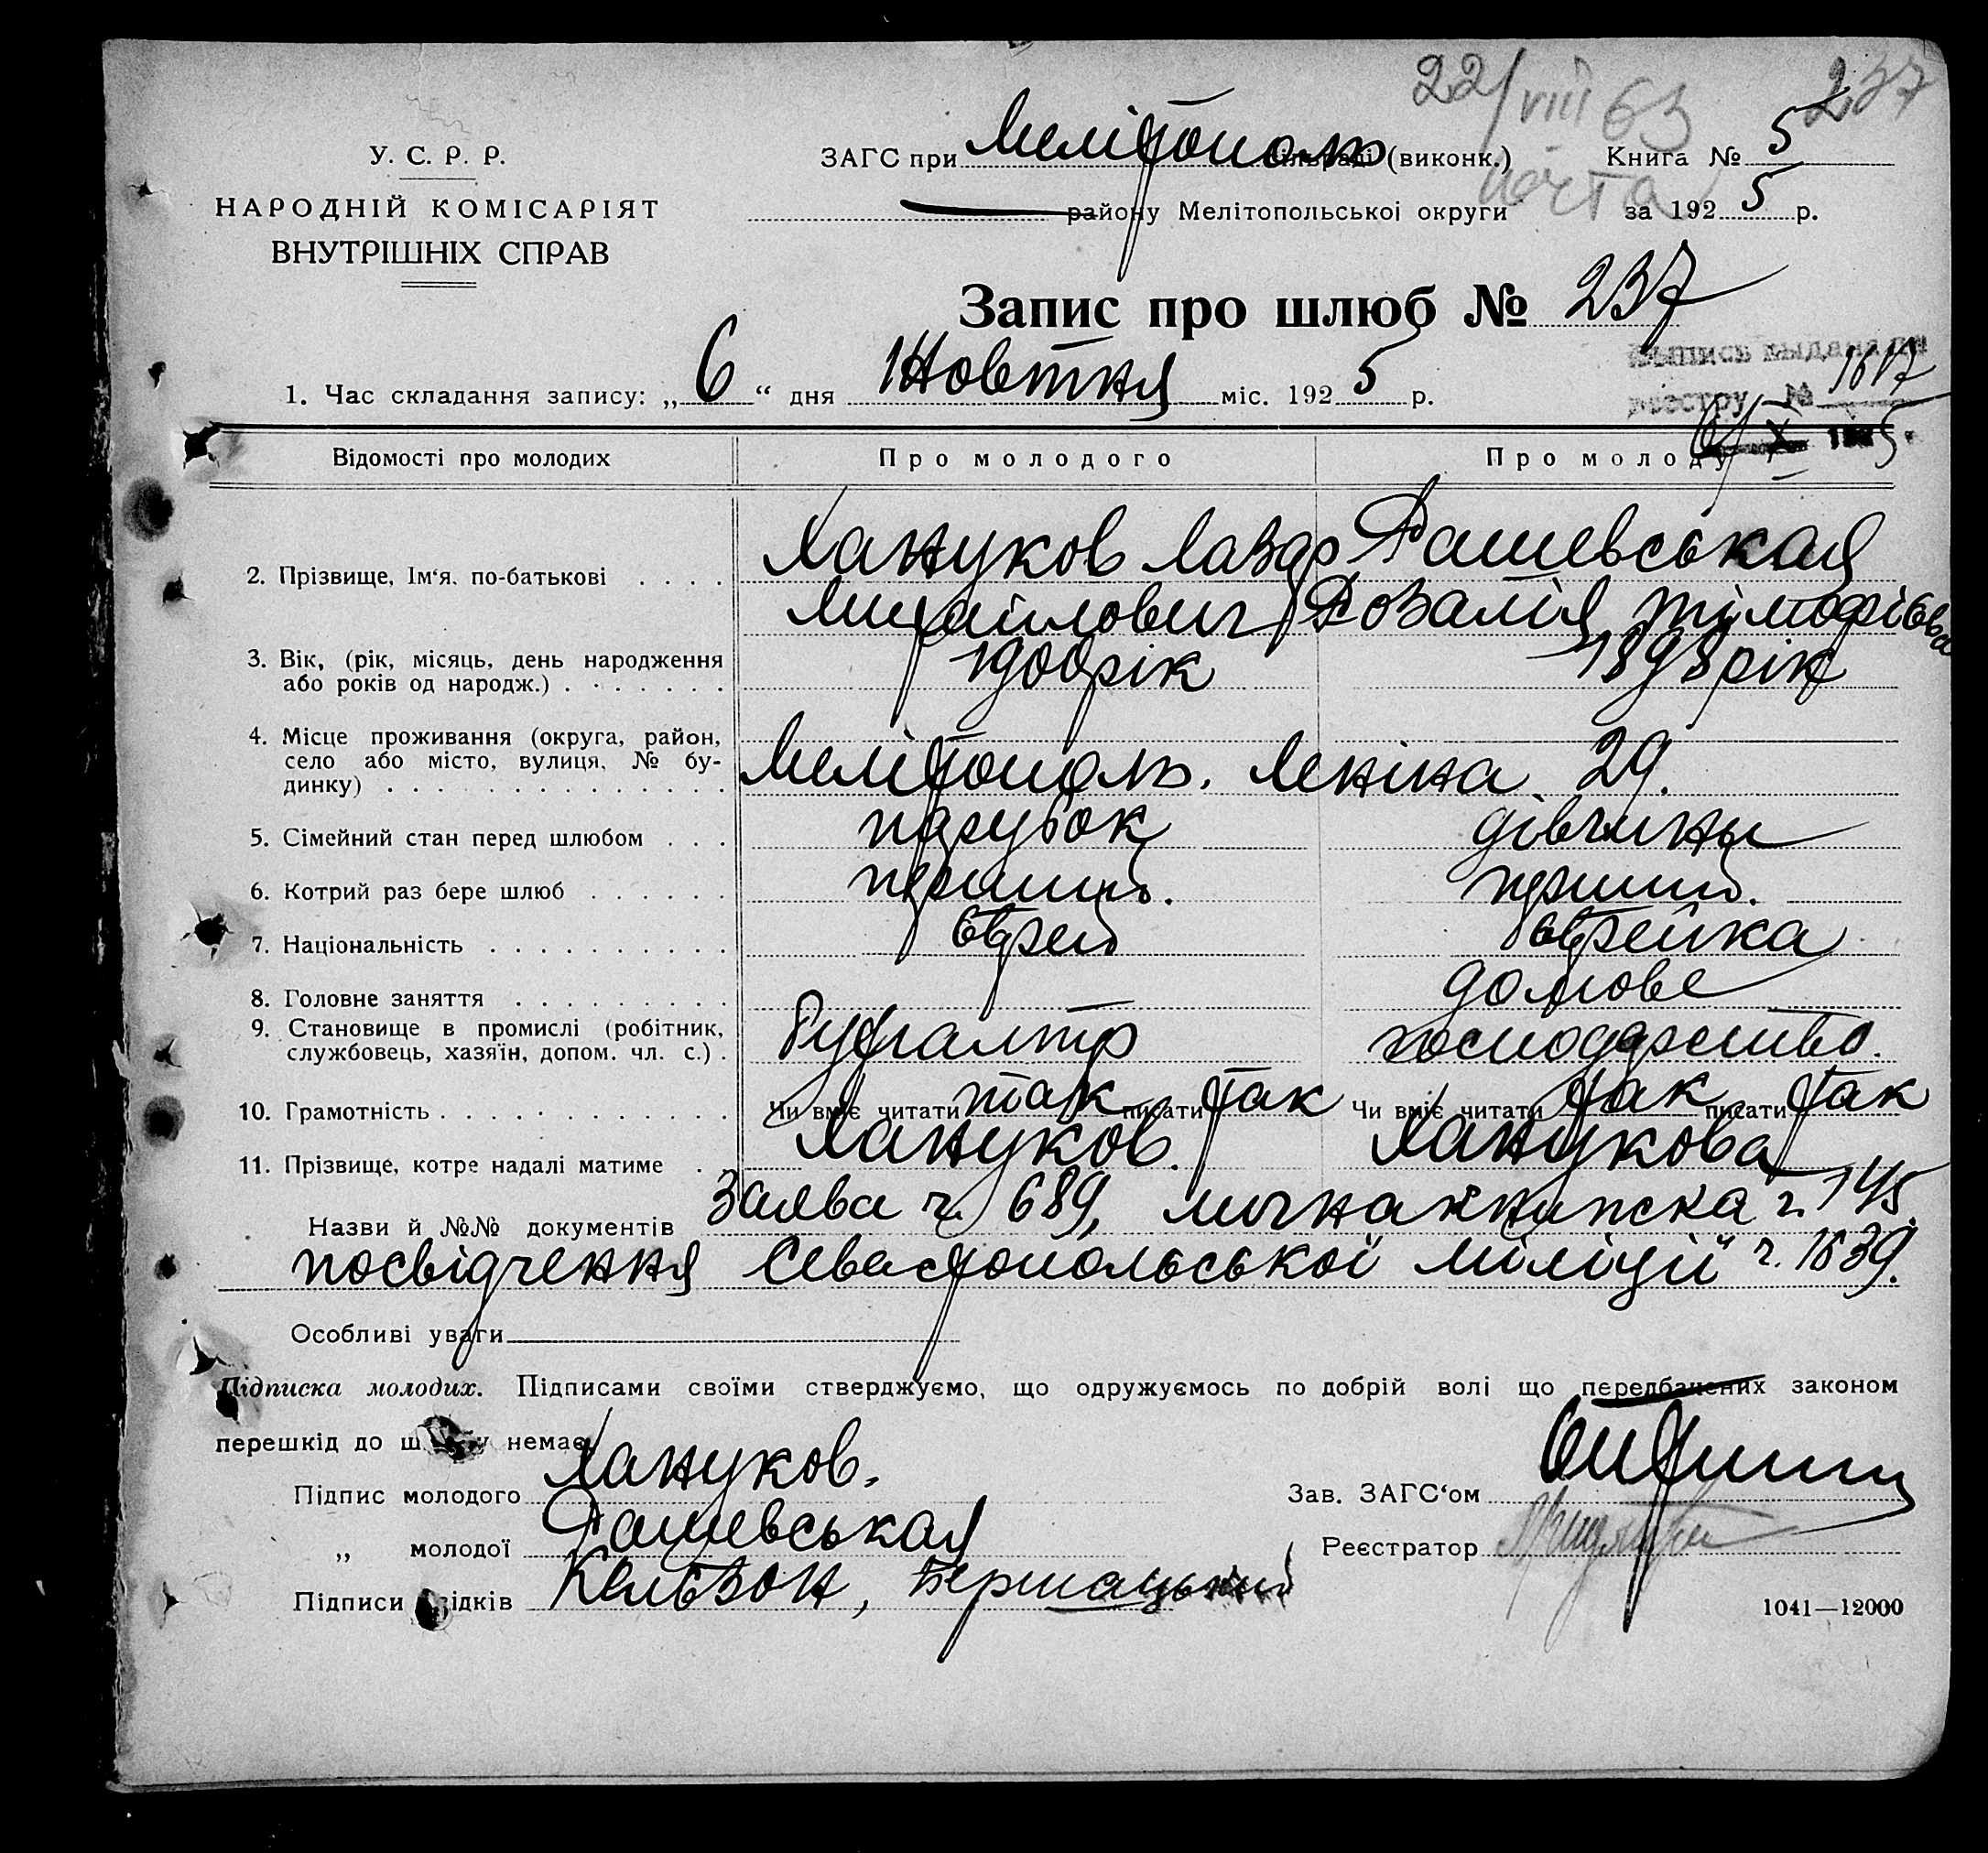 22/VIII 63 237
У. С. Р. Р.
НАРОДНІЙ КОМІСАРІЯТ
ВНУТРІШНІХ СПРАВ
ЗАГС при Мелітополь сільраді (виконк.) Книга № 5
почта
району Мелітопольської округи за 1925 р.
Запис про шлюб № 237
Выпись выдана по
реестру № 1617
6/X 1925 г.
1. Час складання запису: „6“ дня Жовтня міс. 1925 р.
Відомості про молодих Про молодого Про молоду
2. Прізвище, Ім'я, по-батькові . . . . Хануков Лазар Рашевськая
Михайлович Розалія Тімофієвна
3. Вік, (рік, місяць, день народження
або років од народж.) . . . . . . . 1900 рік 1898 рік
4. Місце проживання (округа, район,
село або місто, вулиця, № бу-
динку) . . . . . . . . . . . . . . . Мелітополь. Леніна 29.
5. Сімейний стан перед шлюбом . . . парубок дівчина
6. Котрий раз бере шлюб . . . . . . перший. перший.
7. Національність . . . . . . . . . . єврей єврейка
8. Головне заняття . . . . . . . . . домове
9. Становище в промислі (робітник,
службовець, хазяїн, допом. чл. с.) . Бухгалтер господарство.
10. Грамотність . . . . . . . . . . . . Чи вміє читати так писати так Чи вміє читати так писати так
11. Прізвище, котре надалі матиме . . Хануков. Ханукова
Назви й №№ документів Заява ч. 689, ч. 145.
посвідчення Севастопольської міліції ч. 1839.
Особливі уваги
Підписка молодих. Підписами своїми стверджуємо, що одружуємось по добрій волі що передбачених законом
перешкід до шлюбу немає.
Підпис молодого Хануков.
Зав. ЗАГС'ом
„ молодої Рашевськая
Реєстратор
Підписи свідків Кельзон, Бершацький
1041—12000